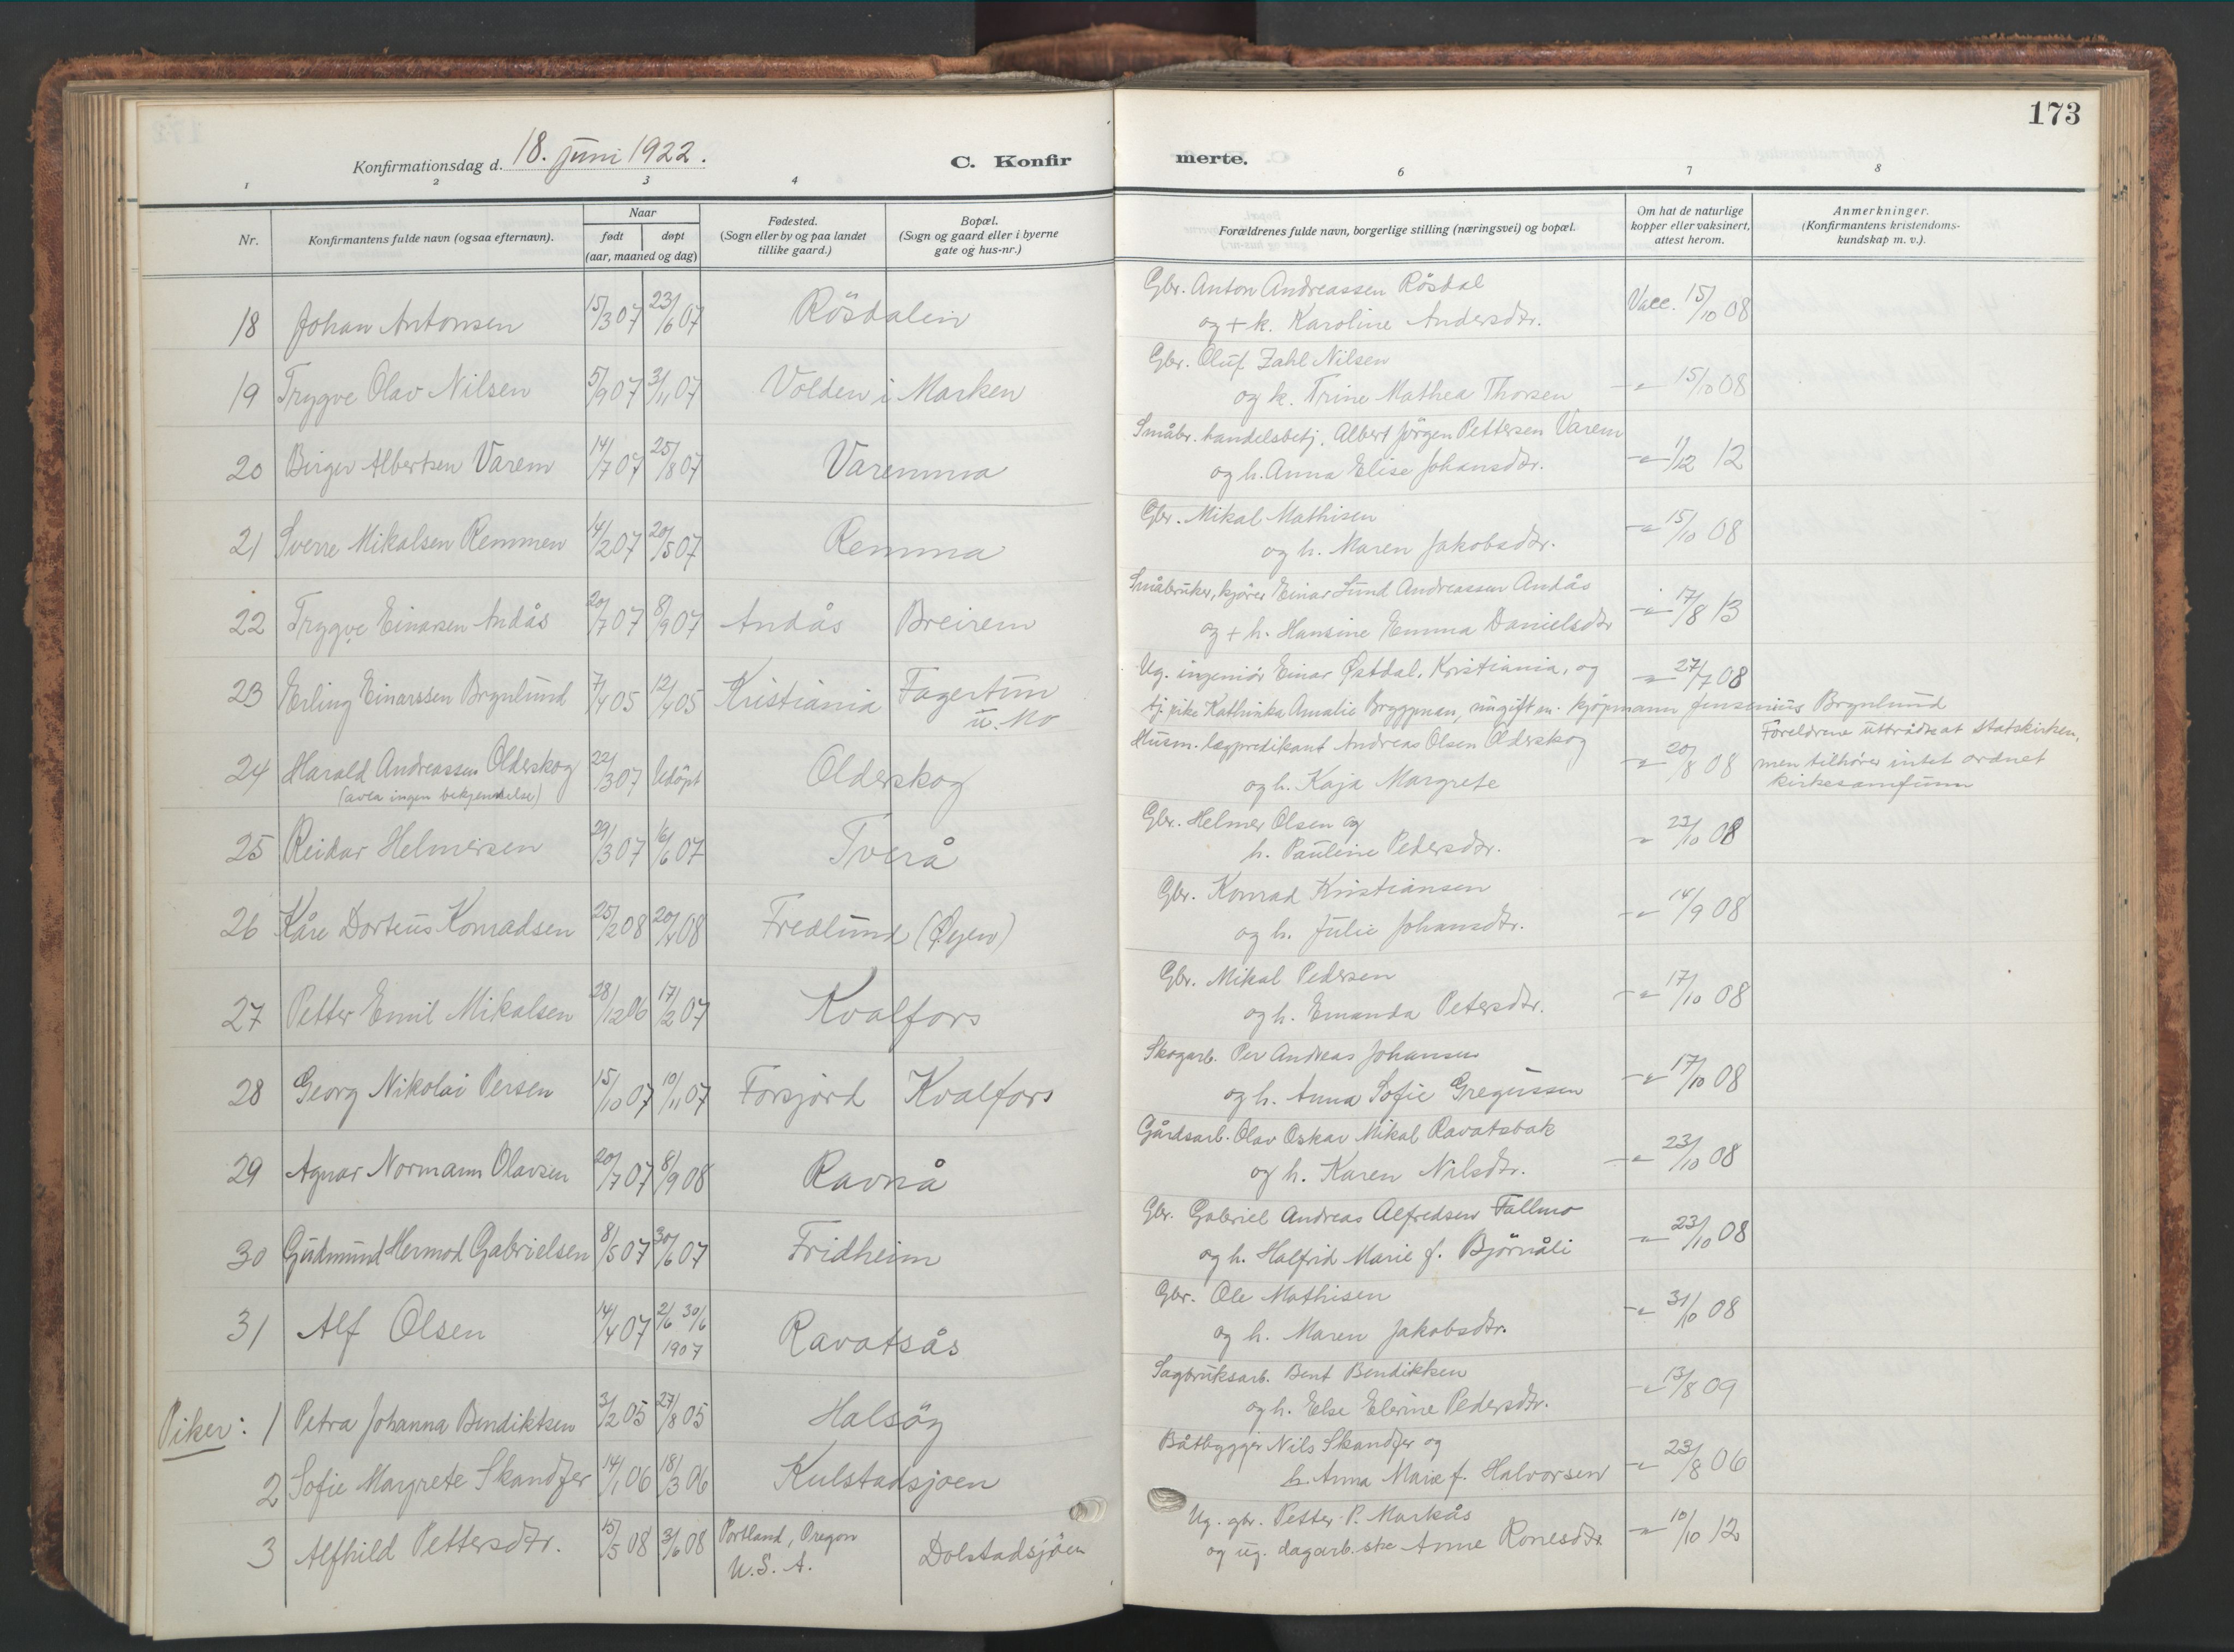 173
Konfirmationsdag d. 18. juni 1922.
C. Konfir
merte.
1 2 3 4 6 7 8
Nr.
Konfirmantens fulde navn (ogsaa efternavn).
Naar
født døpt
(aar, maaned og dag)
Fødested.
(Sogn eller by og paa landet
tillike gaard.)
Bopæl.
(Sogn og gaard eller i byerne
gate og hus-nr.)
Forældrenes fulde navn, borgerlige stilling (næringsvei) og bopæl.
Om hat de naturlige
kopper eller vaksinert,
attest herom.
Anmerkninger.
(Konfirmantens kristendoms-
kundskap m. v.).
18 Johan Antonsen 15/3 07 23/6 07 Rösdalen
Gbr. Anton Andreassen Rösdal
og + k. Karoline Andersdtr. Vacc. 15/10 08
19 Trygve Olav Nilsen 5/9 07 3/11 07 Volden i Marken
Gbr. Oluf Zahl Nilsen
og k. Trine Mathea Thorsen -"- 15/10 08
20 Birger Albertsen Varem 14/7 07 25/8 07 Varemma
Småbr. handelsbetj. Albert Jörgen Pettersen Varem
og h. Anna Elise Johansdtr. -"- 1/12 12
21 Sverre Mikalsen Remmen 14/2 07 20/5 07 Remma
Gbr. Mikal Mathisen
og h. Maren Jakobsdtr. -"- 15/10 08
22 Trygve Einarsen Andås 20/7 07 8/9 07 Andås Breirem
Småbruker, kjörer Einar Lund Andreassen Andås
og + h. Hansine Emma Danielsdtr -"- 17/8 13
23 Erling Einarssen Brynlund 7/4 05 12/4 05 Kristiania Fagertun
u. Mo
Ug. ingeniör Einar Østdal, Kristiania, og -"- 27/7 08
tj. pike Kathinka Amalie Bryggman, nu gift m. kjöpmann Jensenius Brynlund
24 Harald Andreassen Olderskog 22/3 07 Udöpt Olderskog
(avla ingen bekjennelse)
Husm. lægpredikant Andreas Olsen Olderskog
og h. Kaja Margrete -"- 20/8 08
Foreldrene uttrådt at statskirken,
men tilhörer intet ordnet
kirkesamfunn
25 Reidar Helmersen 29/3 07 16/6 07 Tverå
Gbr. Helmer Olsen og
h. Pauline Pedersdtr. -"- 23/10 08
26 Kåre Dorteus Konradsen 25/2 08 20/4 08 Fredlund (Øyen)
Gbr. Konrad Kristiansen
og h. Julie Johansdtr. -"- 14/9 08
27 Petter Emil Mikalsen 28/12 06 17/2 07 Kvalfors
Gbr. Mikal Pedersen
og h. Emanda Petersdtr. -"- 17/10 08
28 Georg Nikolai Persen 15/10 07 10/11 07 Forsjord Kvalfors
Skogarb. Per Andreas Johansen
og h. Anna Sofie Gregussen -"- 17/10 08
29 Agnar Normann Olavsen 20/7 07 8/9 08 Ravnå
Gårdsarb. Olav Oskar Mikal Ravatsbak
og h. Karen Nilsdtr. -"- 23/10 08
30 Gudmund Hermod Gabrielsen 8/5 07 30/6 07 Fridheim
Gbr. Gabriel Andreas Alfredsen Fallmo
og h. Halfrid Marie f. Björnåli -"- 23/10 08
31 Alf Olsen 14/4 07 2/6 30/6 1907 Ravatsås
Gbr. Ole Mathisen
og h. Maren Jakobsdtr. -"- 31/10 08
Piker: 1 Petra Johanna Bendiktsen 3/2 05 27/8 05 Halsöy
Sagbruksarb. Bent Bendiktsen
og h. Else Elerine Pedersdtr. -"- 13/8 09
2 Sofie Margrete Skandfer 14/1 06 18/3 06 Kulstadsjoen
Båtbygger Nils Skandfer og
h. Anna Marie f. Halvorsen -"- 23/8 06
3 Alfhild Pettersdtr. 15/5 08 3/6 08 Portland, Oregon
U. S. A. Dolstadsjöen
Ug. gbr. Petter P. Markås
og ug. dagarb.ske Anne Ronesdtr. -"- 10/10 12